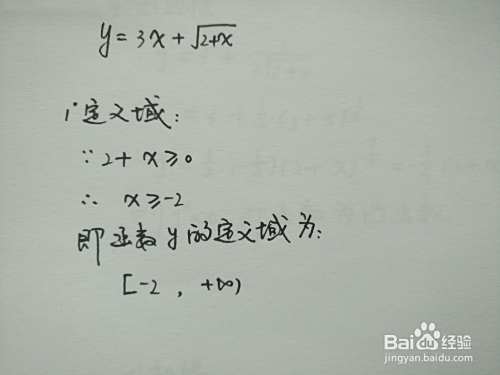 y = 3x + √2+x
i 定义域:
∵ 2 + x ≥ 0
∴ x ≥ -2
即函数 y 的定义域为:
[-2 , +∞)
Baidu 经验
jingyan.baidu.com